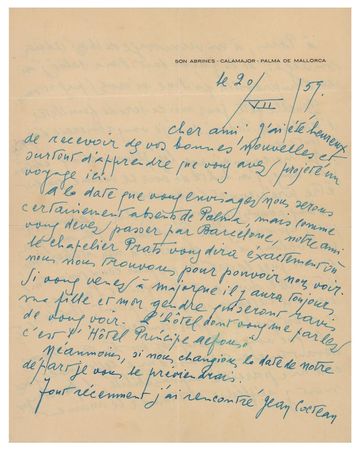 SON ABRINES - CALAMAJOR - PALMA DE MALLORCA
le 20/VII/59.
cher ami: j'ai été heureux
de recevoir de vos bonnes nouvelles et
surtout d'apprendre que vous avez projeté un
voyage ici.
a la date que vous envisagez nous serons
certainement absents de Palma, mais comme
vous devez passer par Barcelone, notre ami
le chapelier Prats vous dira exactement où
nous nous trouvons pour pouvoir nous voir.
Si vous venez à majorque il y aura toujours
ma fille et mon gendre qui seront ravis
de vous voir. L'hôtel dont vous me parlez
c'est l'Hôtel Principe Alfonso
Néanmoins, si nous changions la date de notre
départ je vous le préviendrais.
Tout récemment j'ai rencontré Jean Cocteau